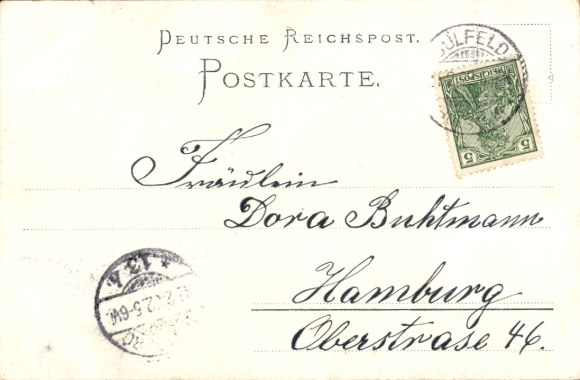 DEUTSCHE REICHSPOST.
POSTKARTE.
REICHSPOST
5 5
Fräulein
Dora Buhtmann
Hamburg
Oberstrase 46.
* 13 h.
5-6N.